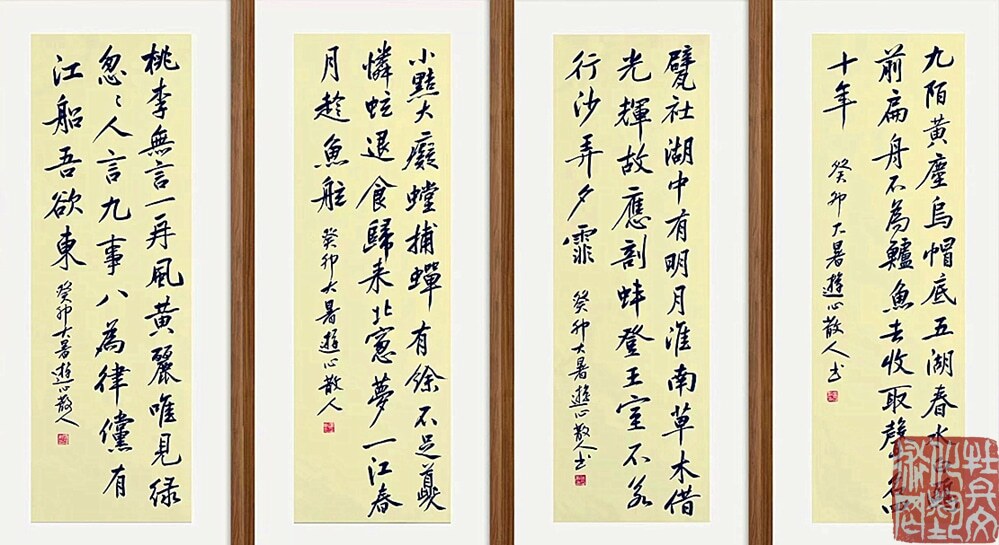 九陌黃塵烏帽底五湖春水白鷗
前扁舟不為鱸魚去收取聲名四
十年
癸卯大暑遊心散人书
甓社湖中有明月淮南草木借
光輝故應剖蚌登王室不若
行沙弄夕霏
癸卯大暑遊心散人书
小黠大癡螳捕蟬有餘不足夔
憐蚿退食歸來北窓夢一江春
月趁魚舩
癸卯大暑遊心散人
桃李無言一再風黃麗唯見绿
忽〻人言九事八為律儻有
江船吾欲東
癸卯大暑遊心散人